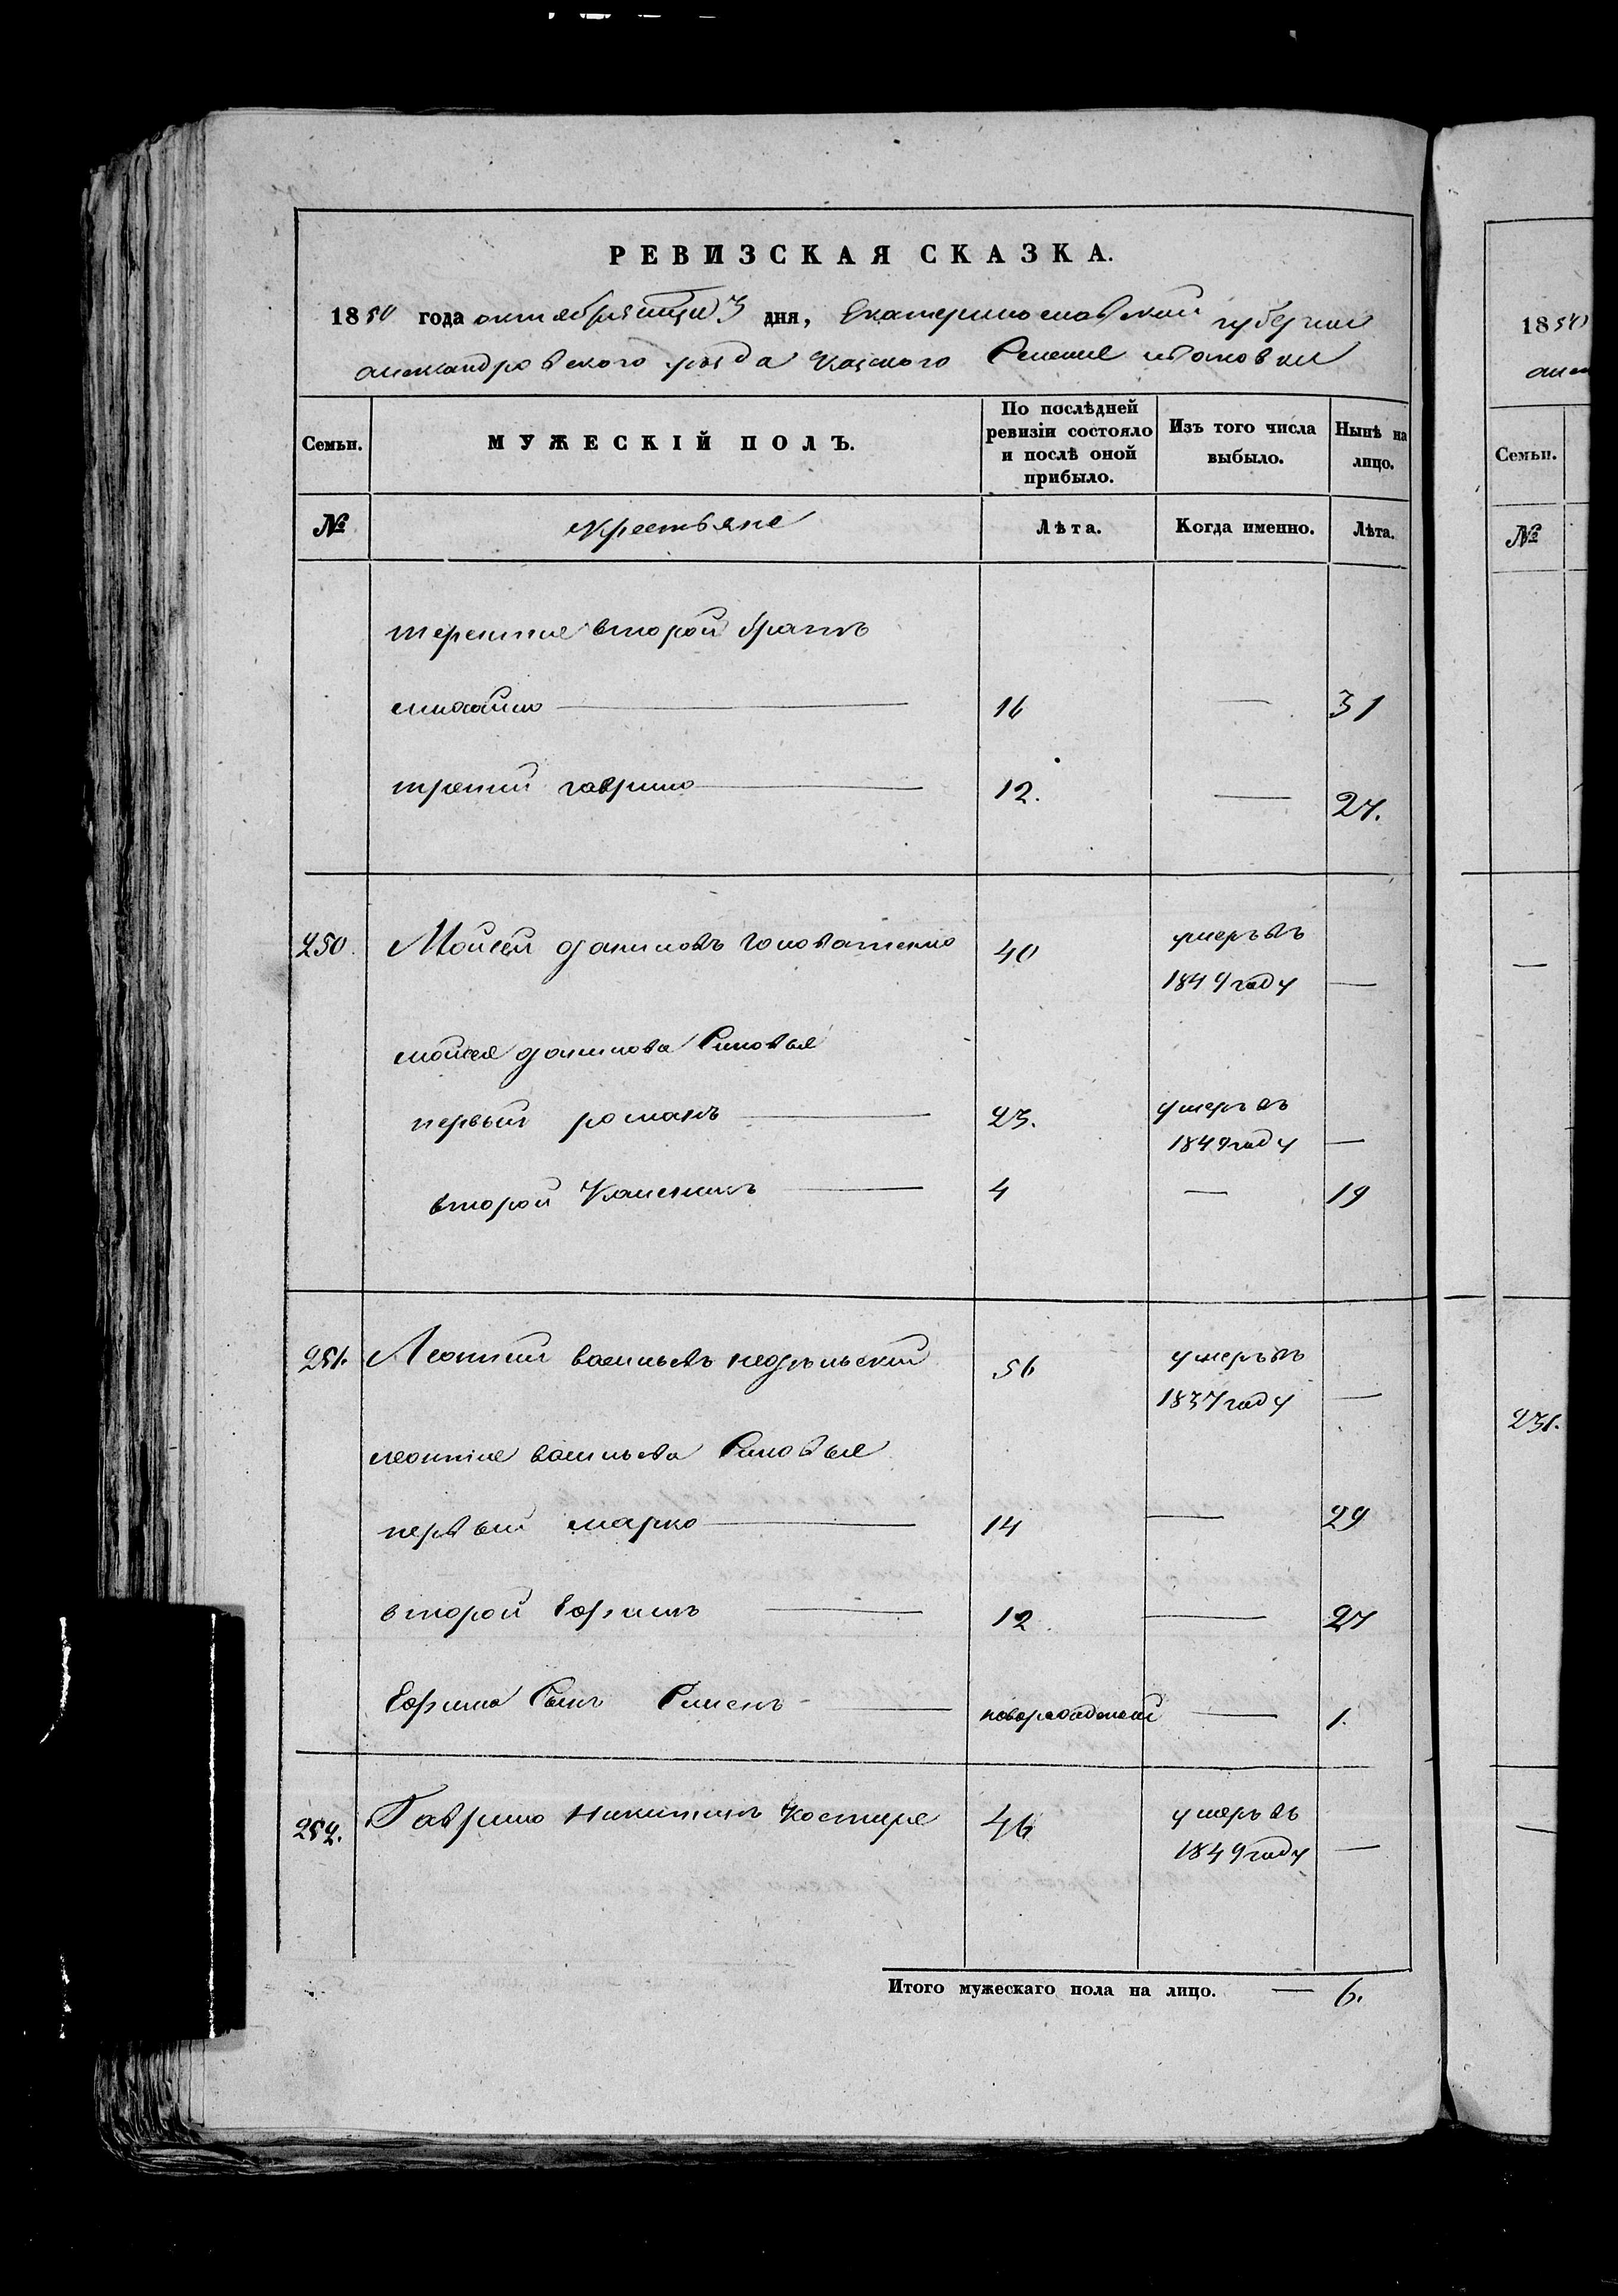 РЕВИЗСКАЯ СКАЗКА.
1850 года октября месяца 3 дня, Екатеринославской губернии
александровского уезда Казеного Селение ивановки
Семьи.
МУЖЕСКІЙ ПОЛЪ.
По послѣдней ревизіи состояло и послѣ оной прибыло.
Изъ того числа выбыло.
Нынѣ на лицо.
№ крестьяне Лѣта. Когда именно. Лѣта.
терентия второй братъ
михайло 16 — 31
третий гаврило 12. — 27.
250. Мойсей даниловъ головатенко 40 умеръ въ
1849 году —
мойсея данилова Сыновья
первый романъ 23. умеръ въ
1849 году —
второй Каленикъ 4 — 19
251. Леонтий васильевъ недельский 56 умеръ въ
1837 году —
леонтия васильева Сыновья
первый марко 14 — 29
второй Ефимъ 12 — 27
Ефима Сынъ Сименъ новорожденый — 1.
252. Гаврило Никитинъ Костыря 46 умеръ въ
1849 году —
Итого мужескаго пола на лицо. — 6.
1850
Семьи.
№
—
231.
—